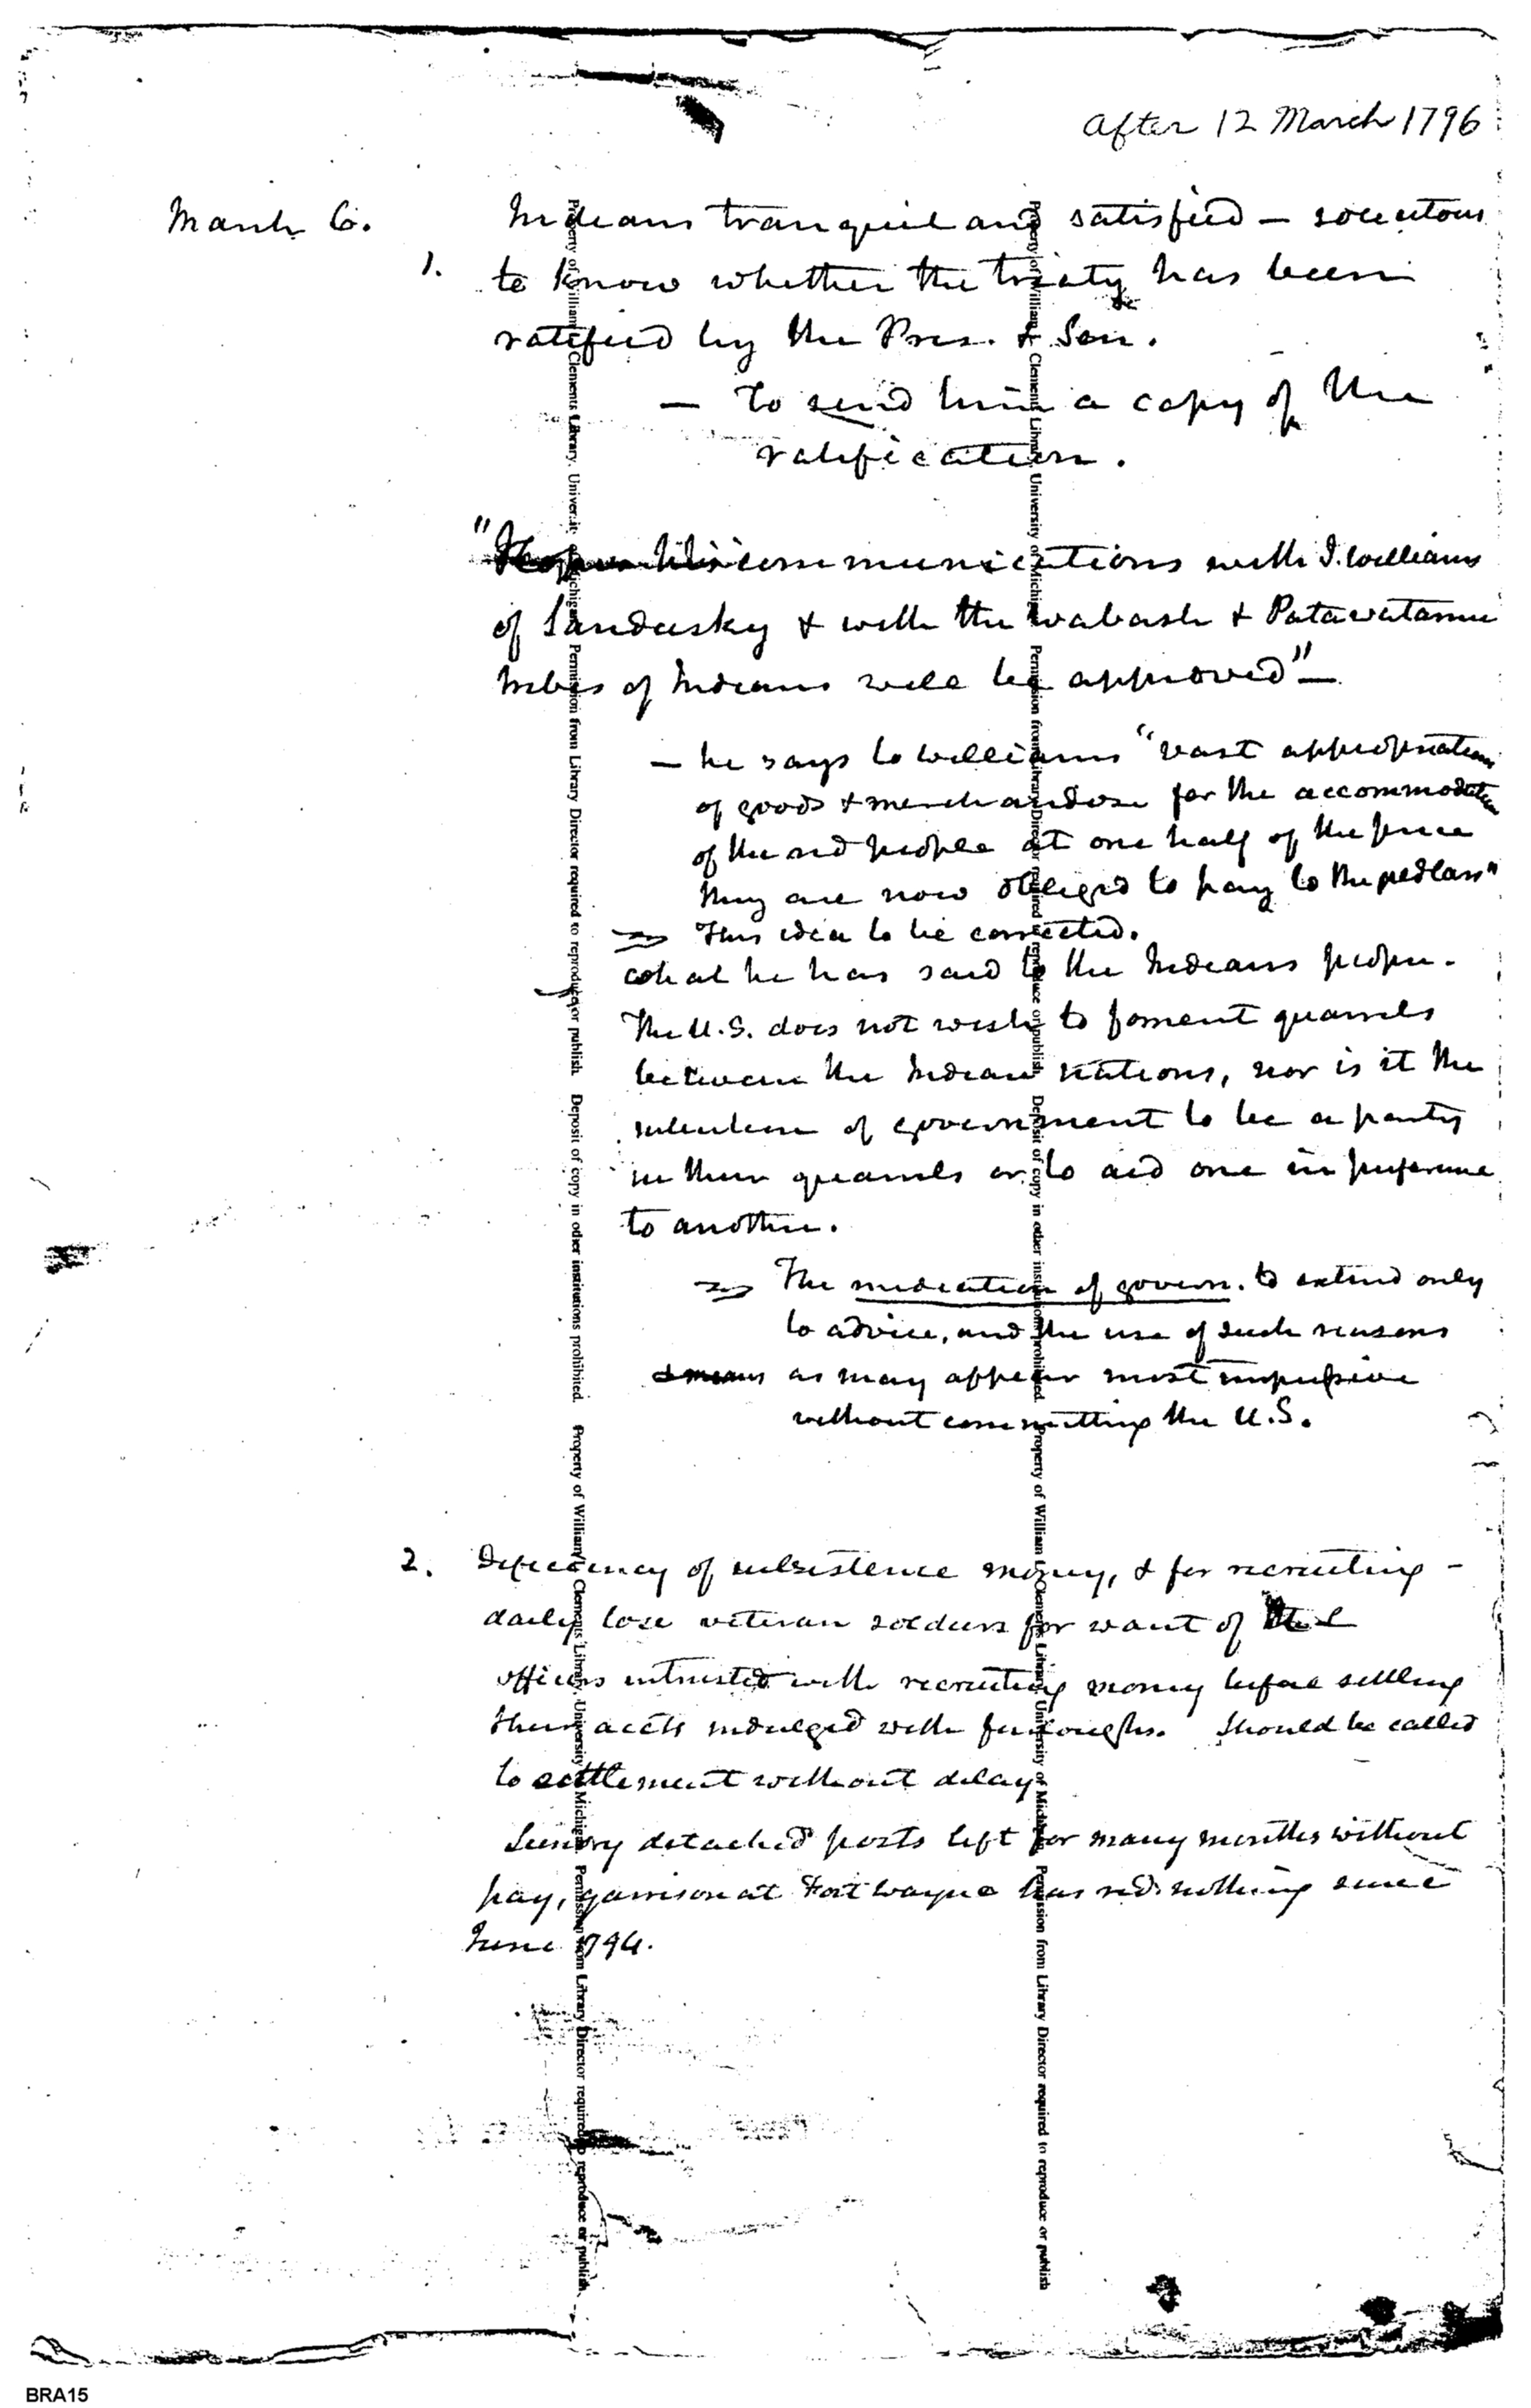 After 12 March 1796
March 6.
Indians tranquil and satisfied — solicitous
1.
to know whether the treaty has been
ratified by the Pres. & Sen.
— To send him a copy of the
ratification.
"Hopes his communications with I. Williams
of Sandusky & with the Wabash & Patawatamie
tribes of Indians will be approved" —
— he says to Williams "vast appropriations
of goods & merchandise for the accommodation
of the red people at one half of the price
they are now obliged to pay to the pedlars"
This idea to be corrected.
What he has said to the Indians proper.
The U.S. does not wish to foment quarrels
between the Indian nations, nor is it the
intention of government to be a party
in their quarrels or to aid one in preference
to another.
The mediation of govern. to extend only
to advice, and the use of such reasons
& means as may appear most impressive
without committing the U.S.
2. Deficiency of subsistence money, & for recruiting —
daily lose veteran soldiers for want of
officers intrusted with recruiting money before settling
their accts indulged with furloughs. Should be called
to settlement without delay
Sundry detached posts left for many months without
pay, garrison at Fort Wayne has recd. nothing since
June 794.
Property of William L. Clements Library, University of Michigan. Permission from Library Director required to reproduce or publish. Deposit of copy in other institutions prohibited. Property of William L. Clements Library, University of Michigan. Permission from Library Director required to reproduce or publish.
Property of William L. Clements Library, University of Michigan. Permission from Library Director required to reproduce or publish. Deposit of copy in other institutions prohibited. Property of William L. Clements Library, University of Michigan. Permission from Library Director required to reproduce or publish
BRA15